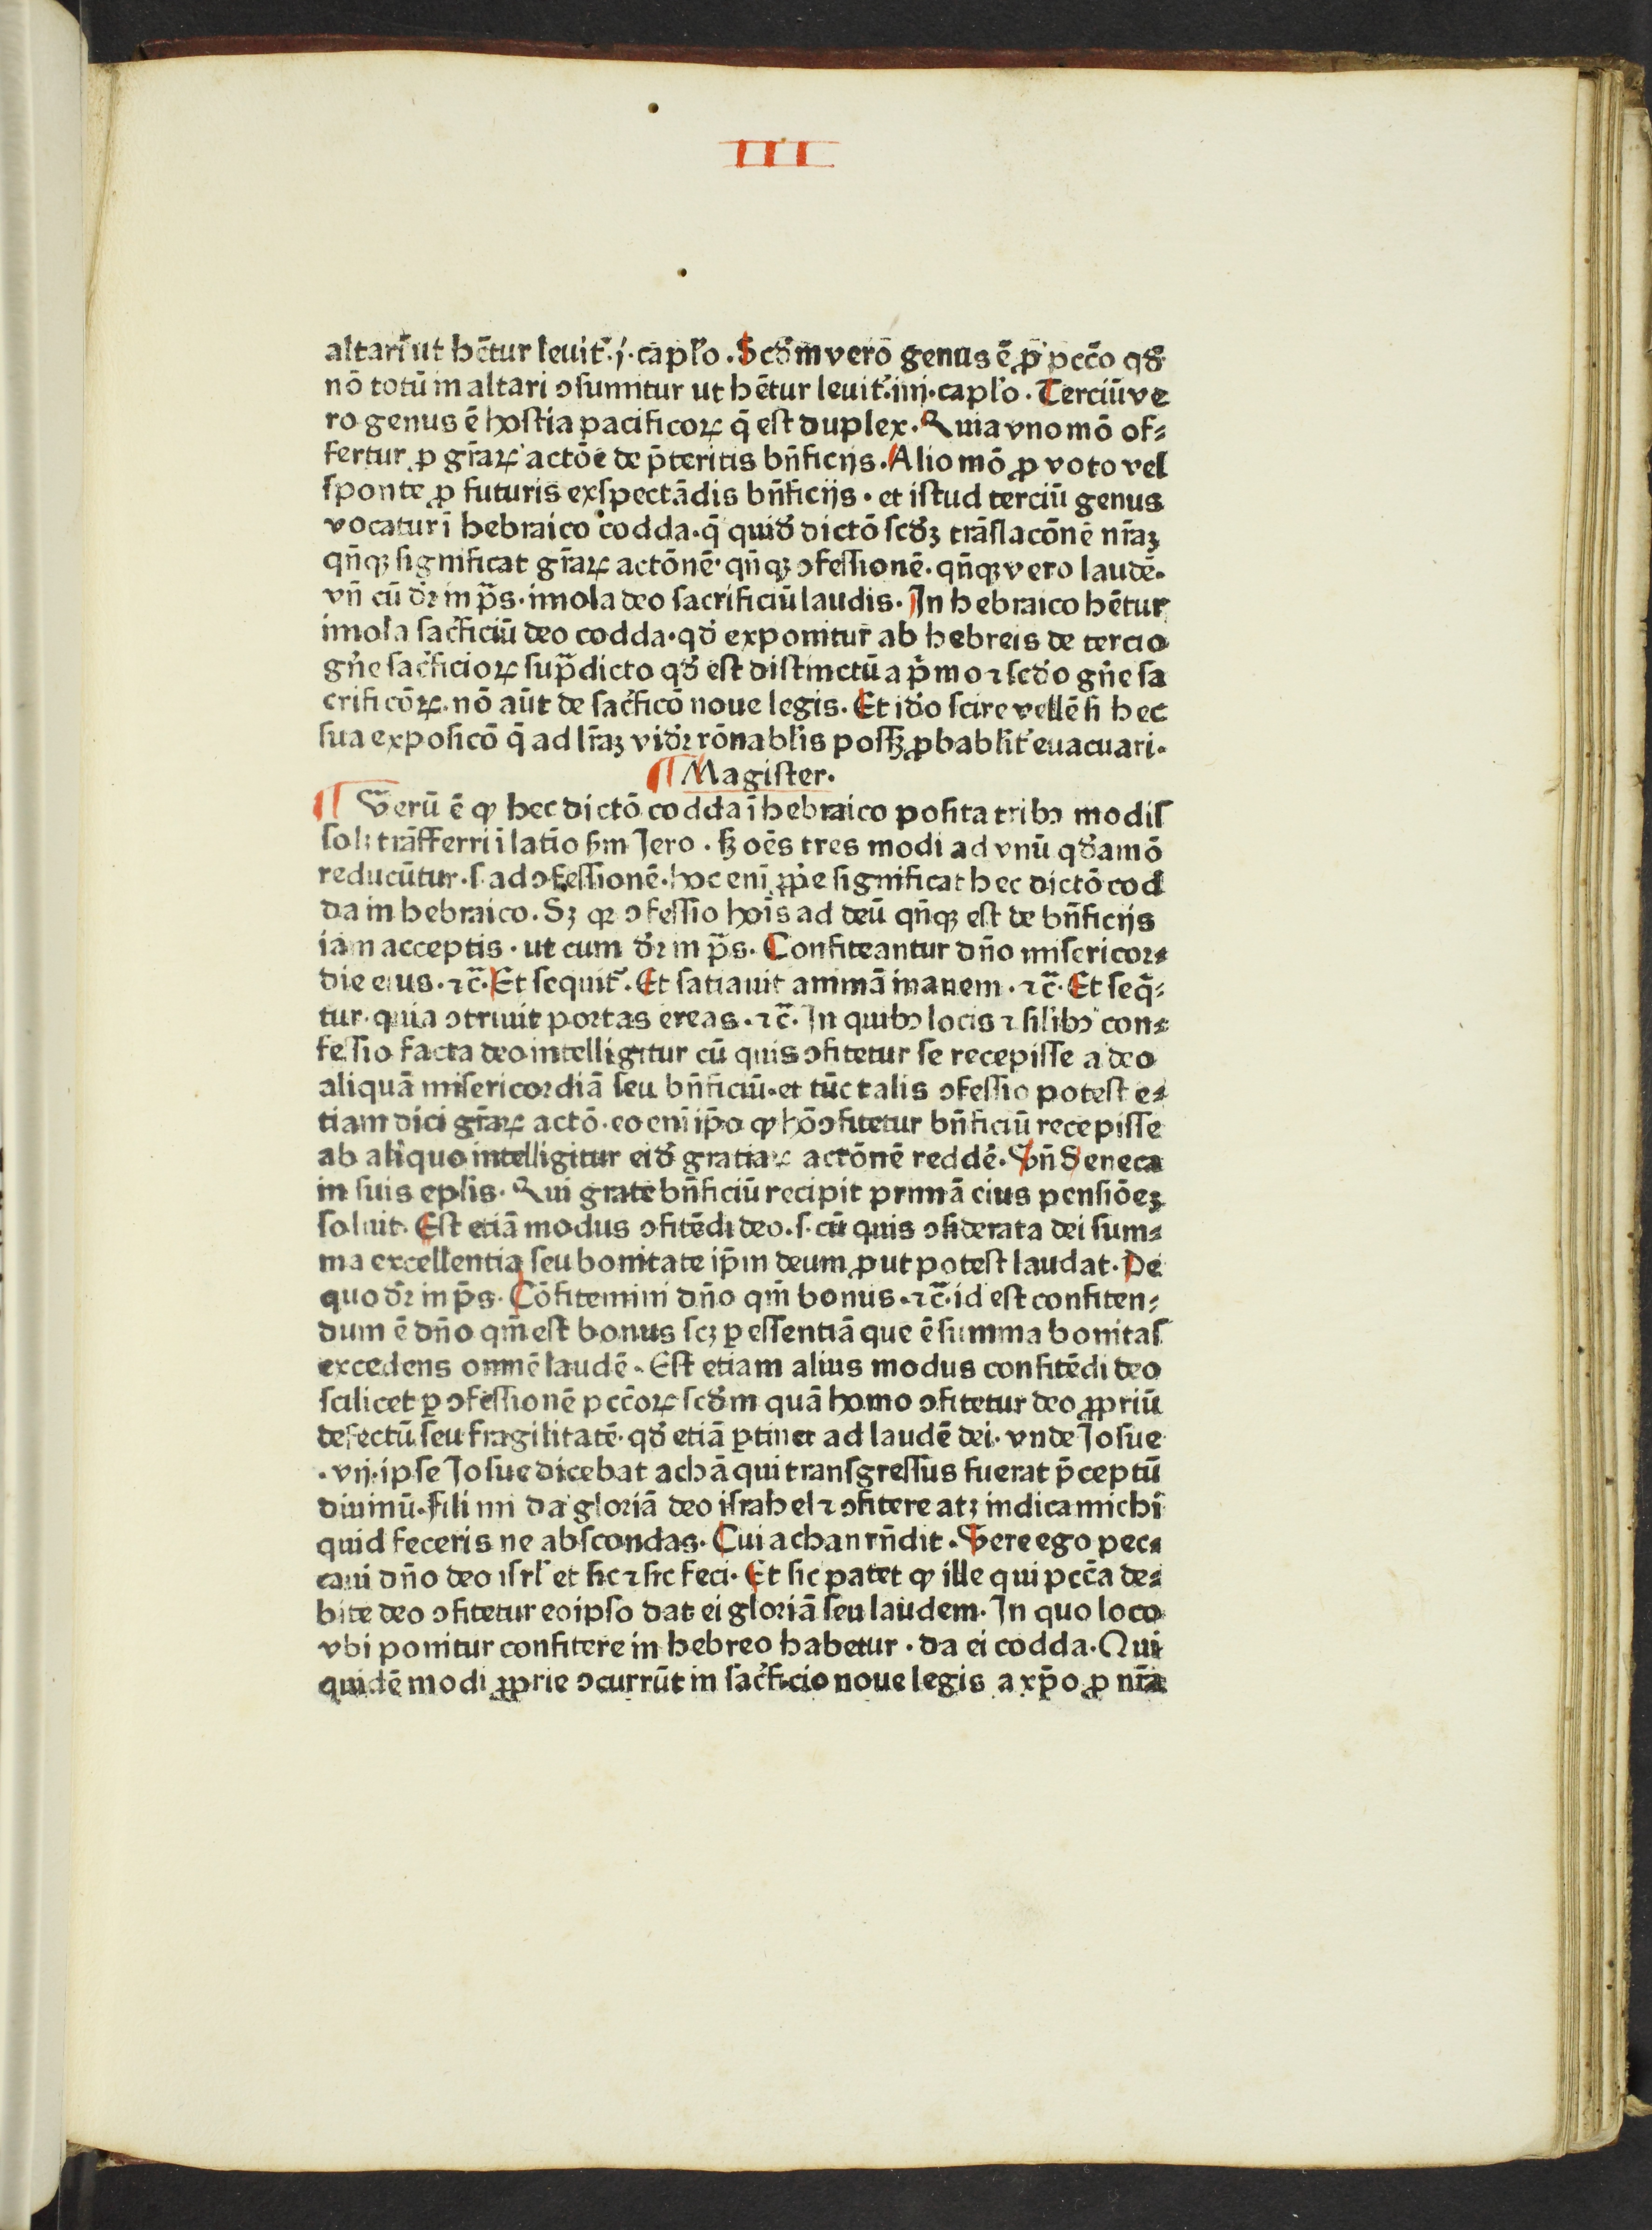 III
altari ut hētur leuit̉.j.capl̉o. Scd̉m vero genus ē ꝓ pccō qd̉
nō totū in altari ↄsumitur ut hētur leuit̉.iiij.capl̉o. Terciū ve
ro genus ē hostia pacificoꝝ q̄ est duplex. Quia vno mō of⸗
fertur ꝓ gr̄aꝝ actōe de p̄teritis bn̄ficijs. Alio mō ꝓ voto vel
sponte ꝓ futuris exspectādis bn̄ficijs. et istud terciū genus
vocatur ī hebraico codda. q̄ quid̉ dictō scd̉ꝫ trāslacōnē nr̄aꝫ
qn̄qꝫ significat gr̄aꝝ actōnē. qn̄qꝫ ↄfessionē. qn̄qꝫ vero laudē.
vn̄ cū dr̉ in p̄s. imola deo sacrificiū laudis. In hebraico hētur
imola sac̉ficiū deo codda. qd̉ exponitur ab hebreis de tercio
gn̉e sac̉ficioꝝ sup̄dicto qd̉ est distinctū a p̉mo ⁊ scd̉o gn̉e sa
crificōꝝ. nō aūt de sac̉ficō noue legis. Et id̉o scire vellē si hec
sua exposicō q̄ ad lr̄aꝫ vid̉r rōnabl̉is possꝫ ꝓbabl̉it̉ euacuari.
¶ Magister.
¶ Verū ē ꝙ hec dictō codda ī hebraico posita tribꝰ modis
solꝫ trāsferri ī latīo sm̄ Jero. sꝫ oēs tres modi ad vnū qd̉amō
reducūtur. s. ad ↄfessionē. hoc enī ꝓp̉e significat hec dictō cod
da in hebraico. Sꝫ qꝛ ↄfessio hoīs ad deū qn̄qꝫ est de bn̄ficijs
iam acceptis. ut cum dr̉ in p̄s. Confiteantur dn̄o misericor⸗
die eius. ⁊c̄. Et sequit̉. Et satiauit animā inanem. ⁊c̄. Et seq̄⸗
tur. quia ↄtriuit portas ereas. ⁊c̄. In quibꝰ locis ⁊ silibꝰ con⸗
fessio facta deo intelligitur cū quis ↄfitetur se recepisse a deo
aliquā misericordiā seu bn̄ficiū. et tūc talis ↄfessio potest e⸗
tiam dici gr̄aꝝ actō. eo enī ip̄o ꝙ hō ↄfitetur bn̄ficiū recepisse
ab aliquo intelligitur eid̉ gratiaꝝ actōnē reddē. Vn̄ Seneca
in suis epl̉is. Qui grate bn̄ficiū recipit primā eius pensiōeꝫ
soluit. Est etiā modus ↄfitēdi deo. s. cū quis ↄsiderata dei sum⸗
ma excellentia seu bonitate ip̄m deum ꝓut potest laudat. De
quo dr̉ in p̄s. Cōfitemini dn̄o qm̄ bonus. ⁊c̄. id est confiten⸗
dum ē dn̄o qm̄ est bonus scꝫ ꝑ essentiā que ē summa bonitas
excedens omnē laudē. Est etiam alius modus confitēdi deo
scilicet ꝑ ↄfessionē pccōꝝ scd̉m quā homo ↄfitetur deo ꝓpriū
defectū seu fragilitatē. qd̉ etiā ꝑtinet ad laudē dei. vnde Josue
.vij. ipse Josue dicebat achā qui transgressus fuerat p̄ceptū
diuinū. fili mi da gloriā deo israhel ⁊ ↄfitere atꝫ indica michi
quid feceris ne abscondas. Cui achan rn̄dit. Vere ego pec⸗
caui dn̄o deo isrl̉ et sic ⁊ sic feci. Et sic patet ꝙ ille qui pccā de⸗
bite deo ↄfitetur eoipso dat ei gloriā seu laudem. In quo loco
vbi ponitur confitere in hebreo habetur. da ei codda. Qui
quidē modi ꝓprie ↄcurrūt in sac̉ficio noue legis a xp̄o ꝓ nr̄a